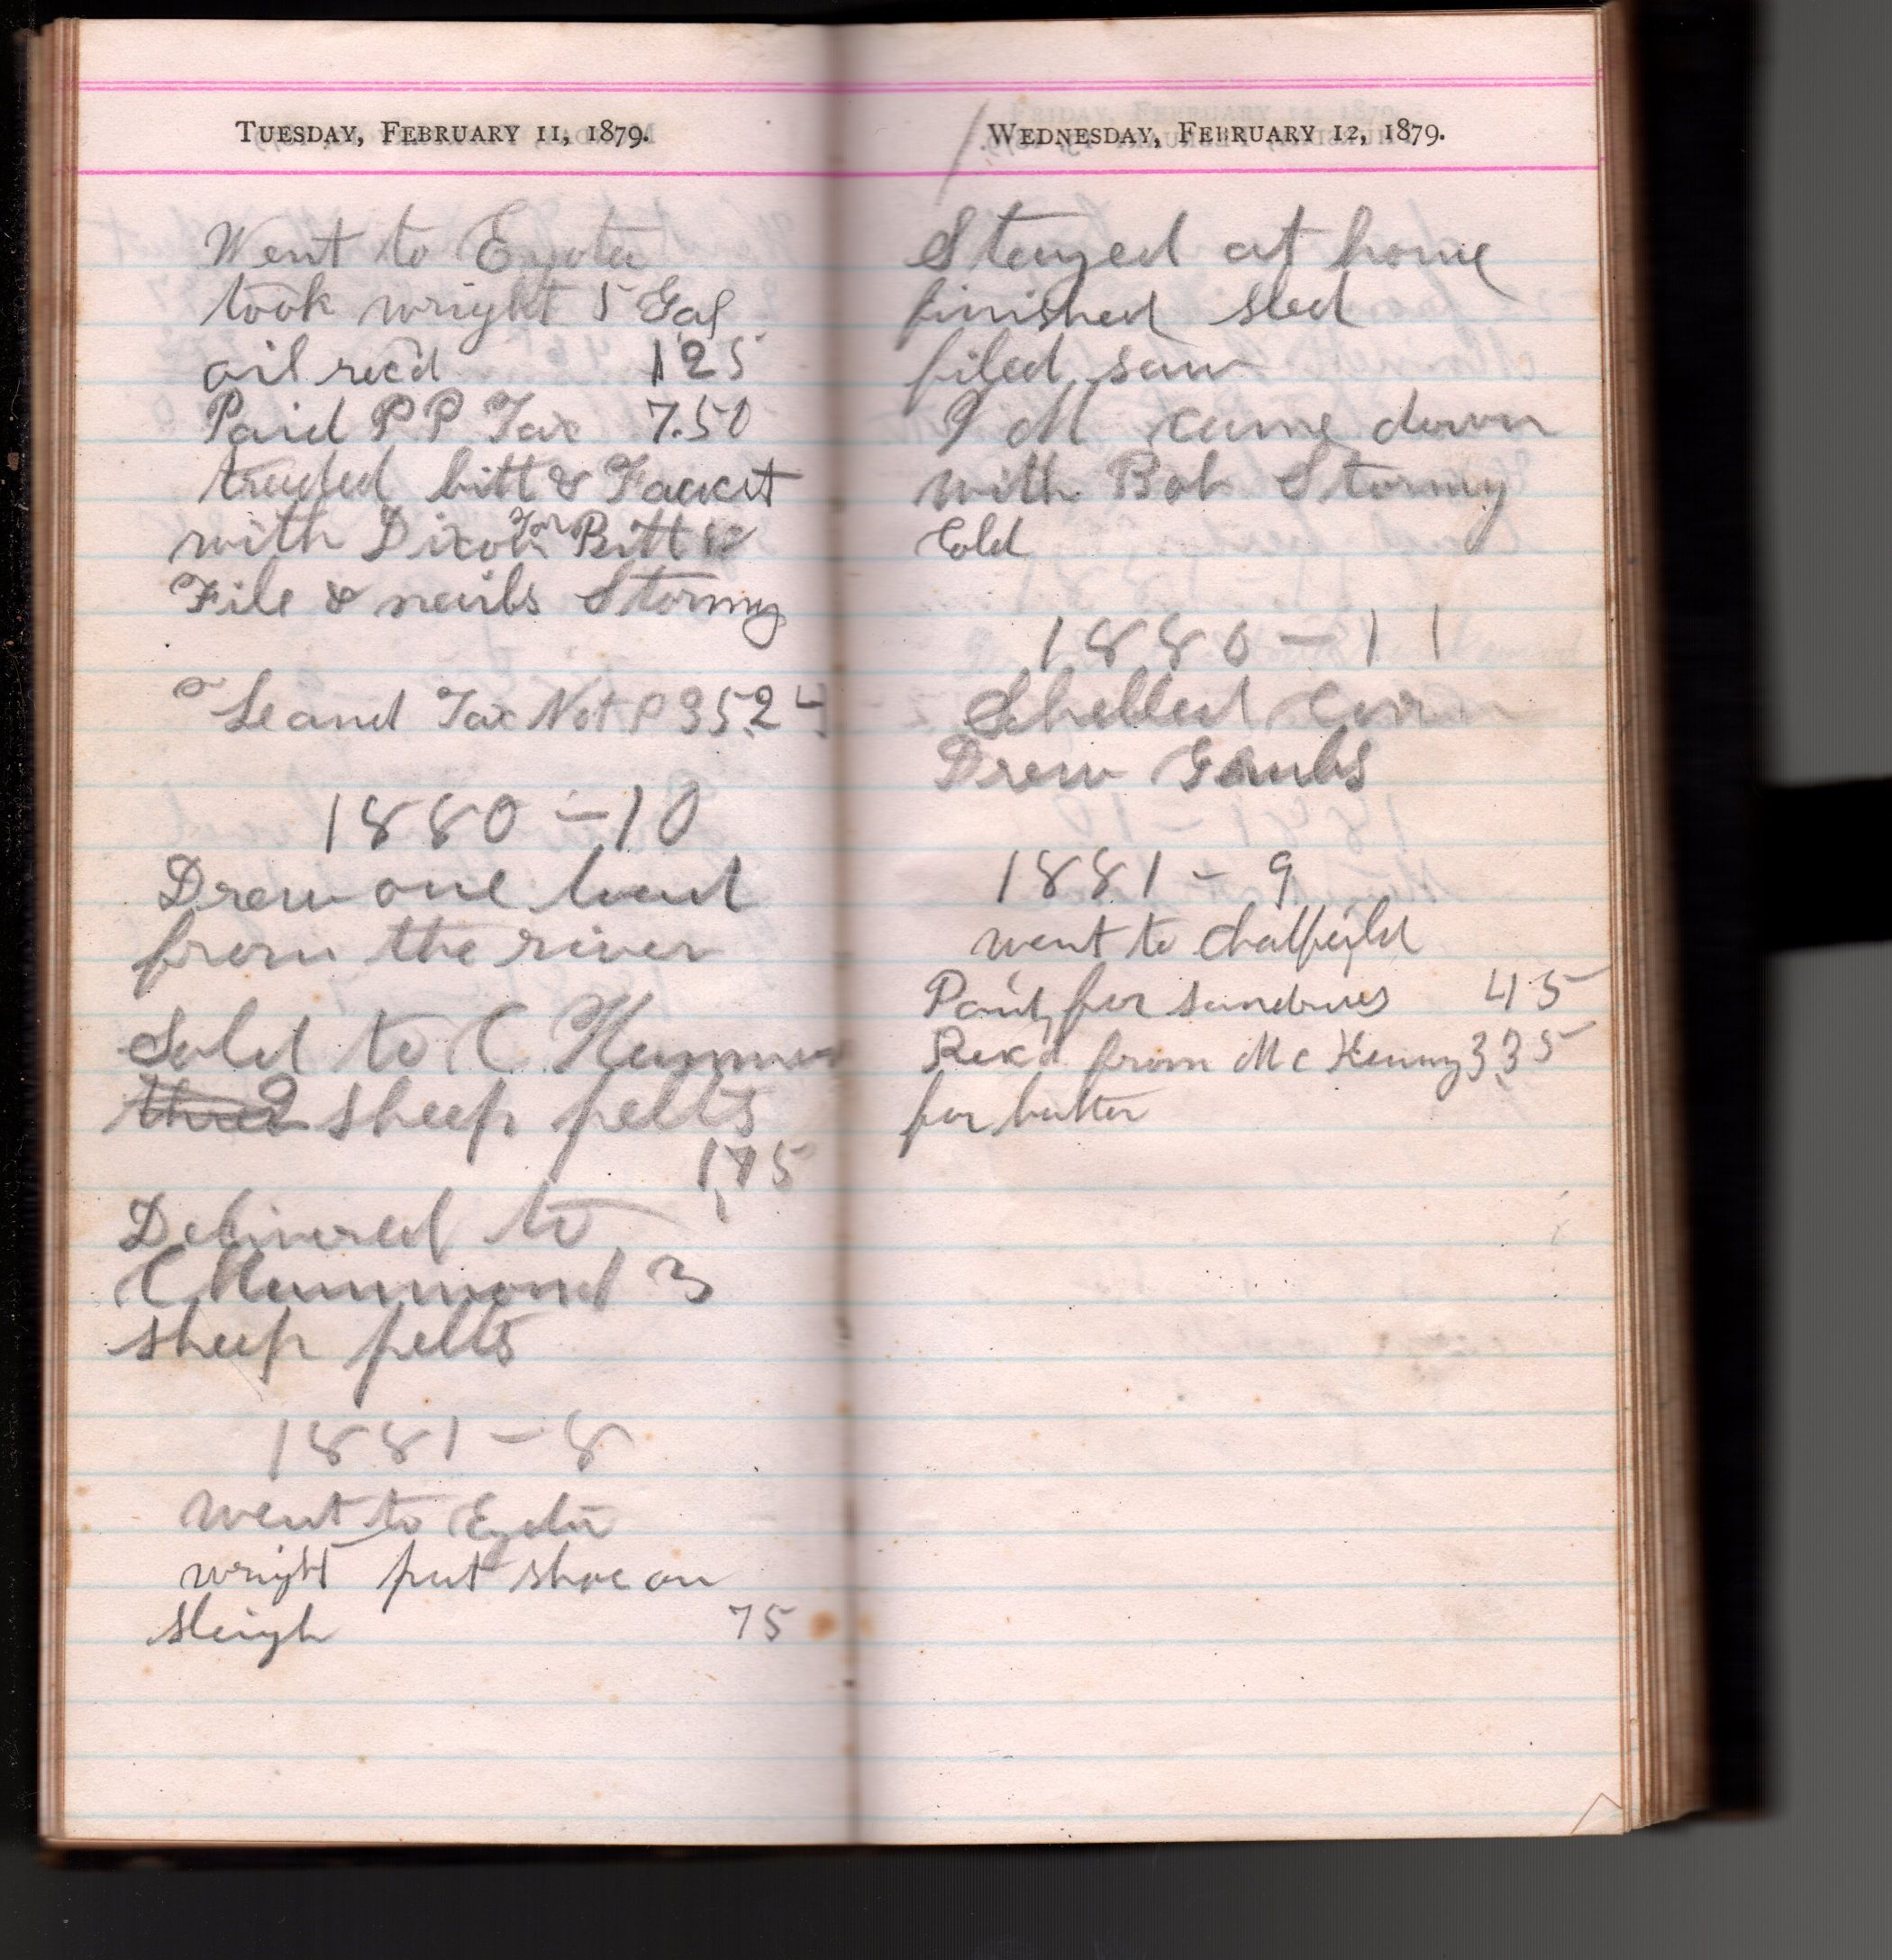 TUESDAY, FEBRUARY 11, 1879.
Went to Eyota
took wright 5 Gal
oil recd 125
Paid PP Tax 7.50
traded bitt & Faucet
with Dixon for Bitt
File & neibs Stormy
Leand Tax Not P 35.24
1880 - 10
Drew one load
from the river
Sold to C Hammon
three 2 sheep pelts
175
Delivered to
C Hammond 3
sheep pelts
1881 - 8
went to Eyota
wright put shoe on
sleigh 75
WEDNESDAY, FEBRUARY 12, 1879.
Stayed at home
finished sled
filed saw
I M came down
with Bob Stormy
Cold
1880 - 11
Shelled Corn
Drew
1881 - 9
went to Chatfeild
Paid for sundries 45
Rec'd from Mc Kenny 3.35
for butter